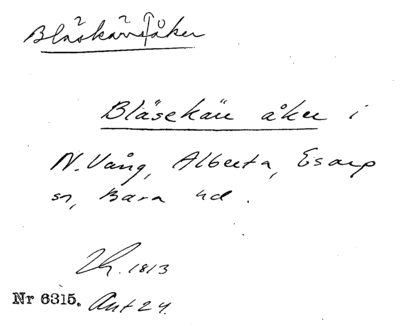 Bläskärsåker
Bläsekär åker i
N. Vång, Alberta, Esarp
sn, Bara hd.
1813
Nr 6315. Akt 24.